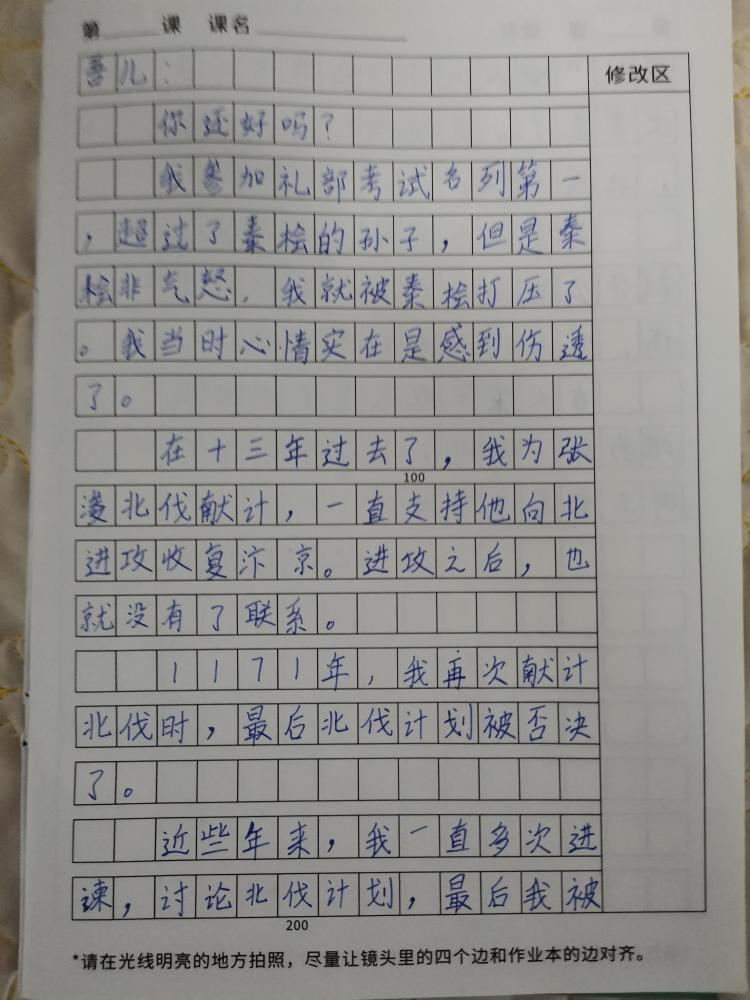 第 课 课名
修改区
吾儿：
你还好吗？
我参加礼部考试名列第一
，超过了秦桧的孙子，但是秦
桧非气怒，我就被秦桧打压了
。我当时心情实在是感到伤透
了。
在十三年过去了，我为张
100
浚北伐献计，一直支持他向北
进攻收复汴京。进攻之后，也
就没有了联系。
1171年，我再次献计
北伐时，最后北伐计划被否决
了。
近些年来，我一直多次进
谏，讨论北伐计划，最后我被
200
*请在光线明亮的地方拍照，尽量让镜头里的四个边和作业本的边对齐。